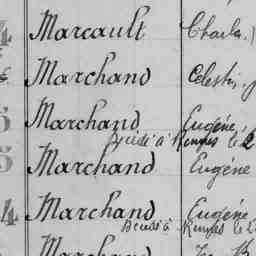 4 Marcault Charles
Marchand Célestin
5 Marchand Eugène,
Décédé à Rennes le 2
5 Marchand Eugène
4 Marchand Eugène
Décédé à Rennes le 2
Marchand